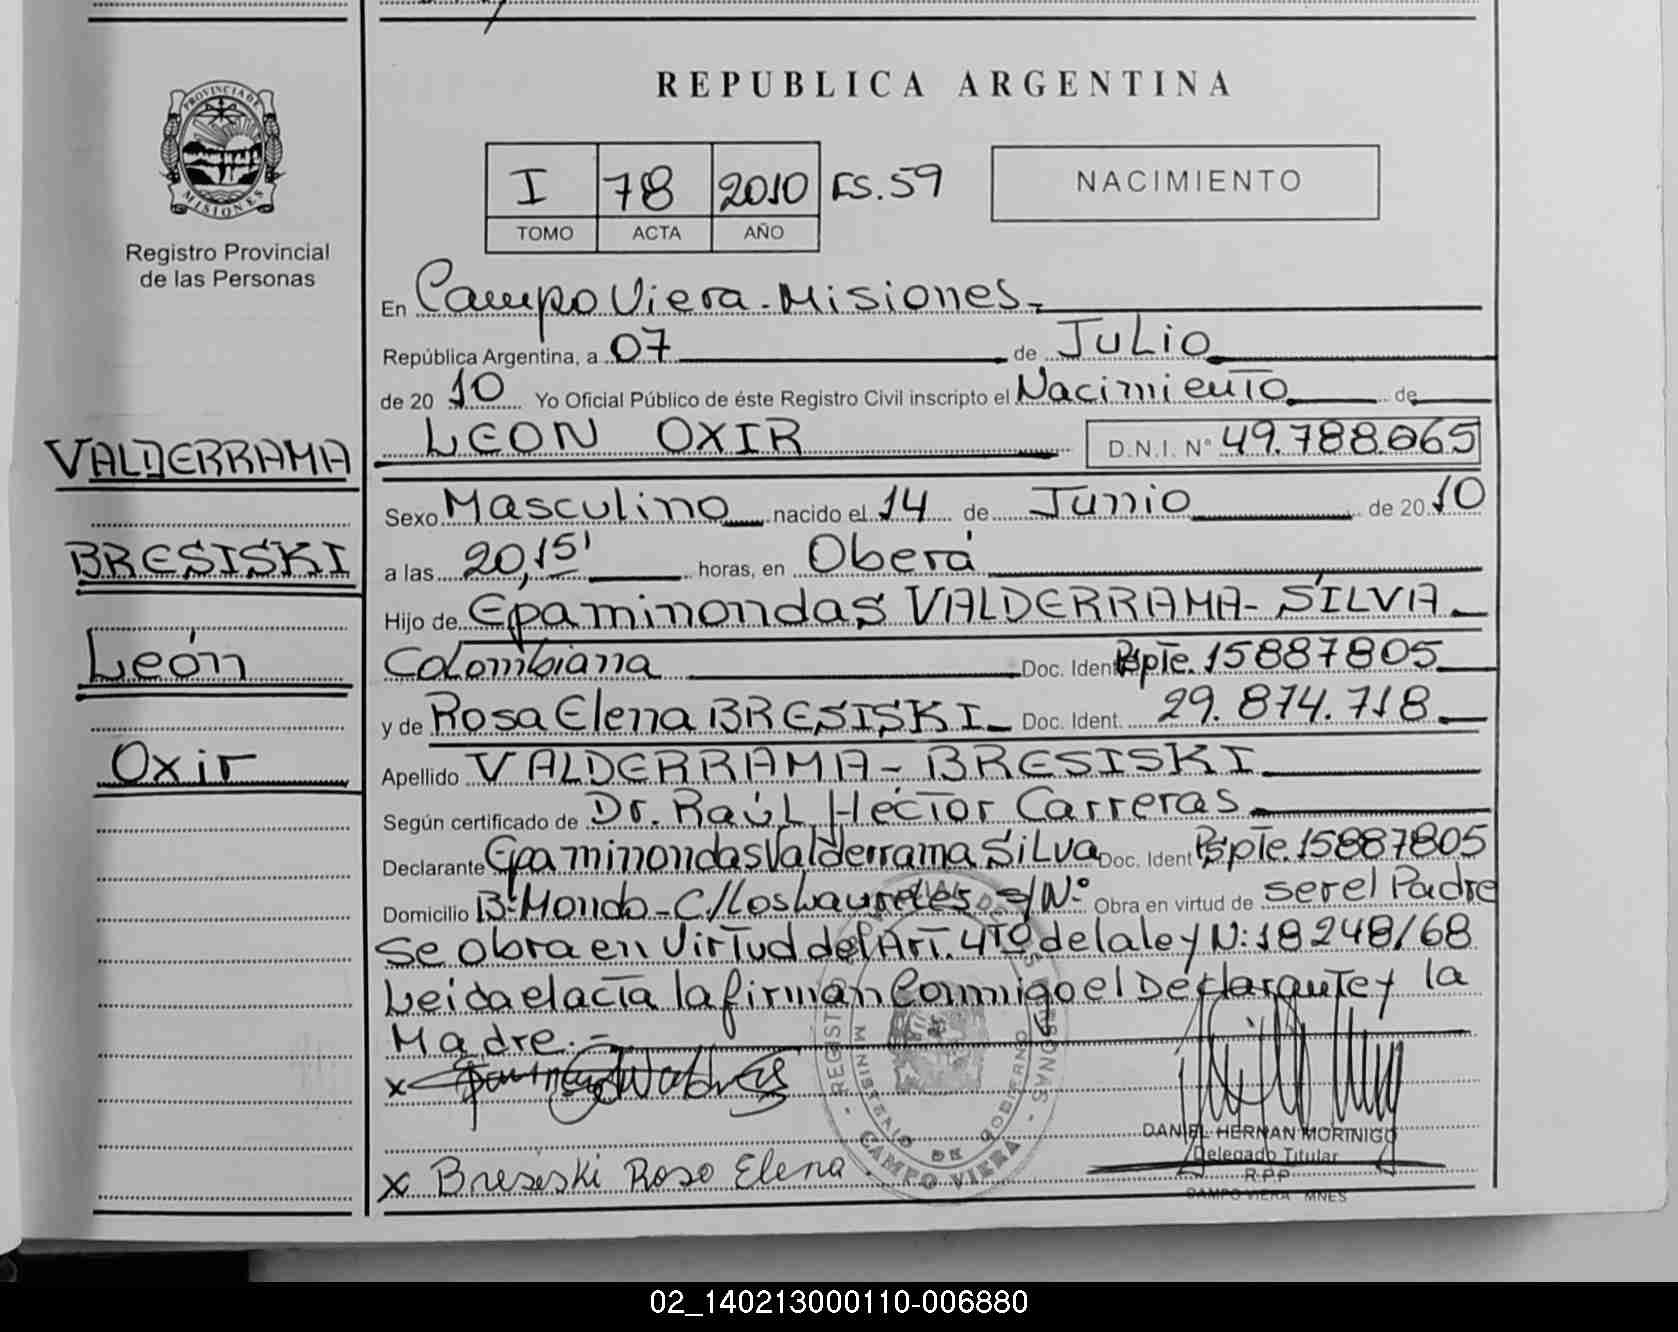 PROVINCIA DE
MISIONES
Registro Provincial
de las Personas
VALDERRAMA
BRESISKI
León
Oxir
REPUBLICA ARGENTINA
I 78 2010 FS.59
TOMO ACTA AÑO
NACIMIENTO
En Campo Viera - Misiones.-
República Argentina, a 07 de Julio
de 20 10 Yo Oficial Público de éste Registro Civil inscripto el Nacimiento de
LEON OXIR D.N.I. N° 49.788.065
Sexo Masculino nacido el 14 de Junio de 20 10
a las 20,15' horas, en Oberá
Hijo de Epaminondas VALDERRAMA - SILVA
Colombiana Doc. Ident. Pspte. 15887805
y de Rosa Elena BRESISKI Doc. Ident. 29.874.718
Apellido VALDERRAMA - BRESISKI
Según certificado de Dr. Raúl Héctor Carreras
Declarante Epaminondas Valderrama Silva Doc. Ident Pspte. 15887805
Domicilio B° Mondo - C/Los Laureles s/N° Obra en virtud de ser el Padre
Se obra en Virtud del Art. 4to de la ley N: 18248/68
Leida el acta la firman Conmigo el Declarante y la
Madre. =
x
x Bresiski Rosa Elena
REGISTRO PROVINCIAL DE LAS PERSONAS
MINISTERIO DE GOBIERNO
- CAMPO VIERA -
DANIEL HERNAN MORINIGO
Delegado Titular
R.P.P
CAMPO VIERA MNES
02_140213000110-006880